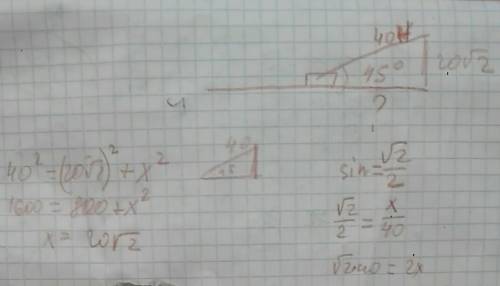 40H
45° 20√2
4 ?
40² = (20√2)² + x²
1600 = 800 + x²
x = 20√2
40
45
sin = √2/2
√2/2 = x/40
√2·40 = 2x